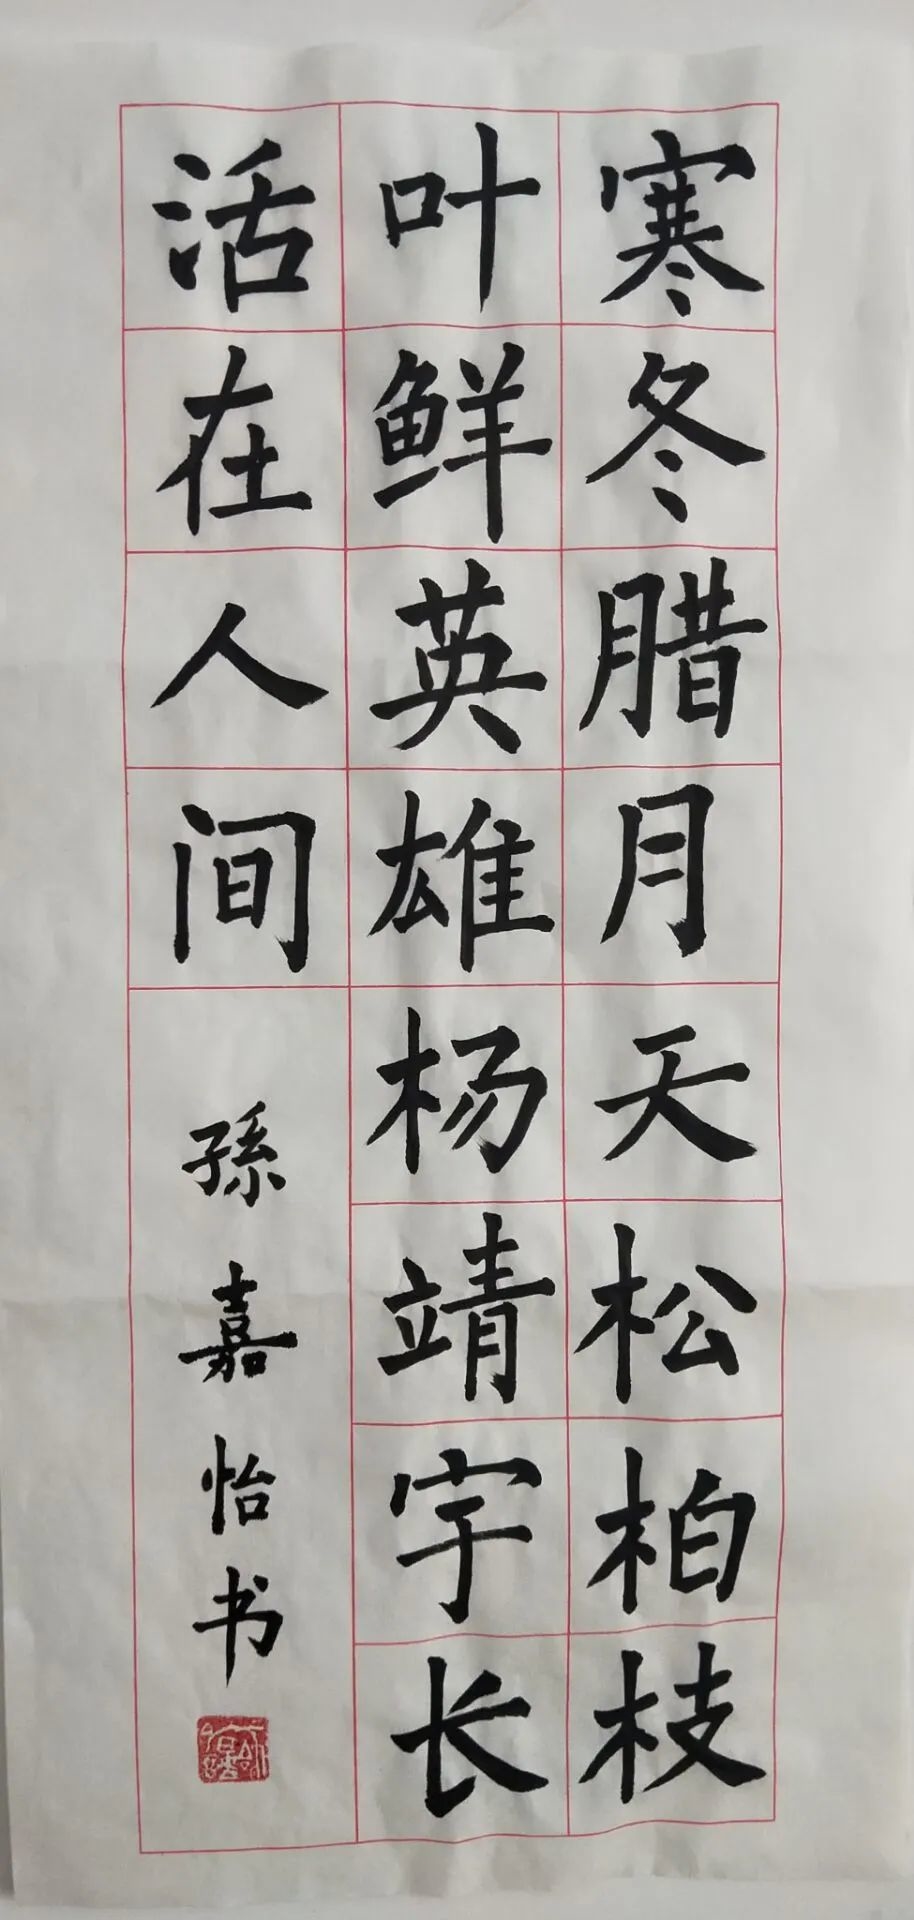 寒冬腊月天松柏枝
叶鲜英雄杨靖宇长
活在人间
孫嘉怡书